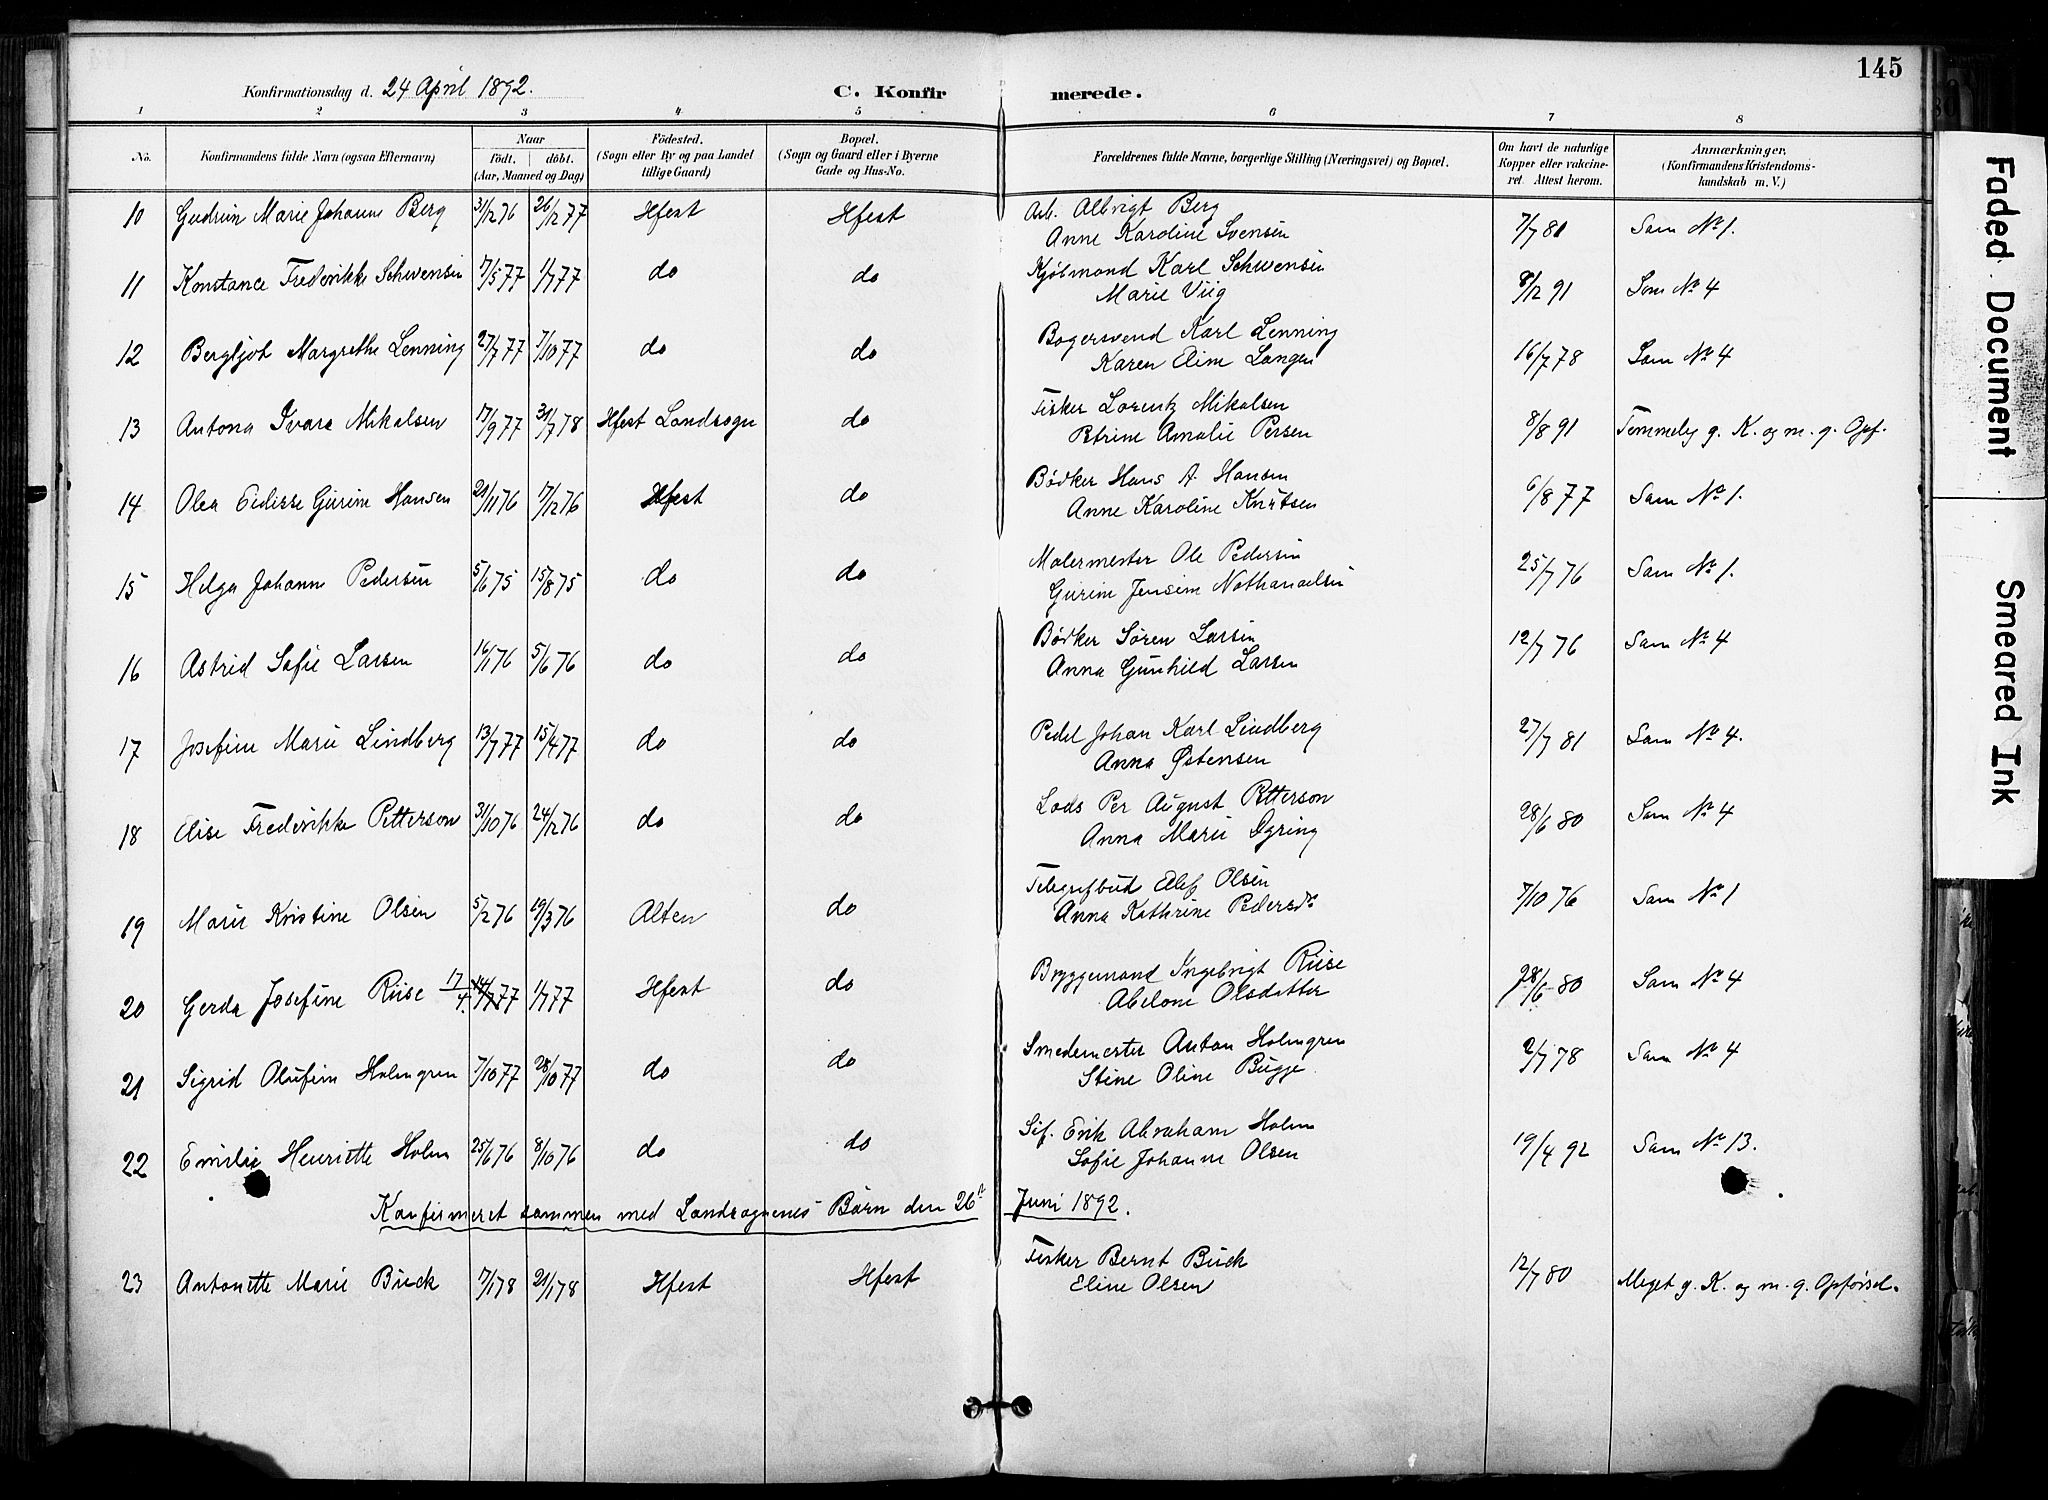 145
Konfirmationsdag d. 24 April 1892.
C. Konfirmerede.
1 2 3 4 5 6 7 8
No. Konfirmandens fulde Navn (ogsaa Efternavn) Naar født. døbt. (Aar, Maaned og Dag) Fødested. (Sogn eller By og paa Landet tillige Gaard) Bopæl. (Sogn og Gaard eller i Byerne Gade og Hus-No. Forældrenes fulde Navne, borgerlige Stilling (Næringsvei) og Bopæl. Om havt de naturlige Kopper eller vakcineret. Attest herom. Anmærkninger. (Konfirmandens Kristendomskundskab m. V.)
10 Gudrun Marie Johanne Berg 31/12 76 26/12 77 Hfest Hfest Arb. Albrigt Berg 7/7 81 Sam No 1.
Anne Karoline Svensen
11 Konstance Frederikke Schwensen 7/5 77 1/7 77 do do Kjøbmand Karl Schwensen 8/12 91 Som No 4
Marie Viig
12 Bergljot Margrethe Lenning 27/7 77 7/10 77 do do Bogersvend Karl Lenning 16/7 78 Som No 4
Karen Eline Langen
13 Antona Ivara Mikalsen 17/9 77 31/7 78 Hfest Landsogn do Fisker Lorentz Mikalsen 8/8 91 Temmelig g. K. og m. g. Opf.
Petrine Amalie Persen
14 Olea Gurine Hansen 21/11 76 7/12 76 Hfest do Bødker Hans A. Hansen 6/8 77 Sam No 1.
Anne Karoline Knutsen
15 Helga Johanne Pedersen 5/6 75 15/8 75 do do Malermester Ole Pedersen 25/7 76 Sam No 1.
Gurine Jensine Nathanaelsen
16 Astrid Sofie Larsen 16/1 76 5/6 76 do do Bødker Søren Larsen 12/7 76 Sam No 4
Anna Gunhild Larsen
17 Josefine Marie Lindberg 13/7 77 15/4 77 do do Pedel Johan Karl Lindberg 27/7 81 Sam No 4.
Anna Østensen
18 Elise Frederikke Petterson 31/10 76 24/12 76 do do Lods Per August Petterson 28/6 80 Sam No 4
Anna Marie
19 Marie Kristine Olsen 5/2 76 19/3 76 Alten do Telegrafbud Olsen 7/10 76 Sam No 1
Anna Kathrine Pedersdr
20 Gerda Josefine Riise 17/4 14/7 77 1/7 77 Hfest do Bryggemand Ingebrigt Riise 28/6 80 Sam No 4
Abelone Olsdatter
21 Sigrid Olufine Holmgren 7/10 77 28/10 77 do do Smedemester Anton Holmgren 2/7 78 Sam No 4
Stine Oline Bugge
22 Emilie Henriette Holm 25/6 76 8/10 76 do do Sif. Erik Abraham Holm 19/4 92 Sam No 13.
Sofie Johanne Olsen
Konfirmeret sammen med Landsognenes Børn den 26n Juni 1892.
23 Antonette Marie Buck 7/1 78 21/1 78 Hfest Hfest Fisker Bernt Buck 12/7 80 Meget g. K. og m. g. Opførsel.
Eline Olsen
Faded Document
Smeared Ink